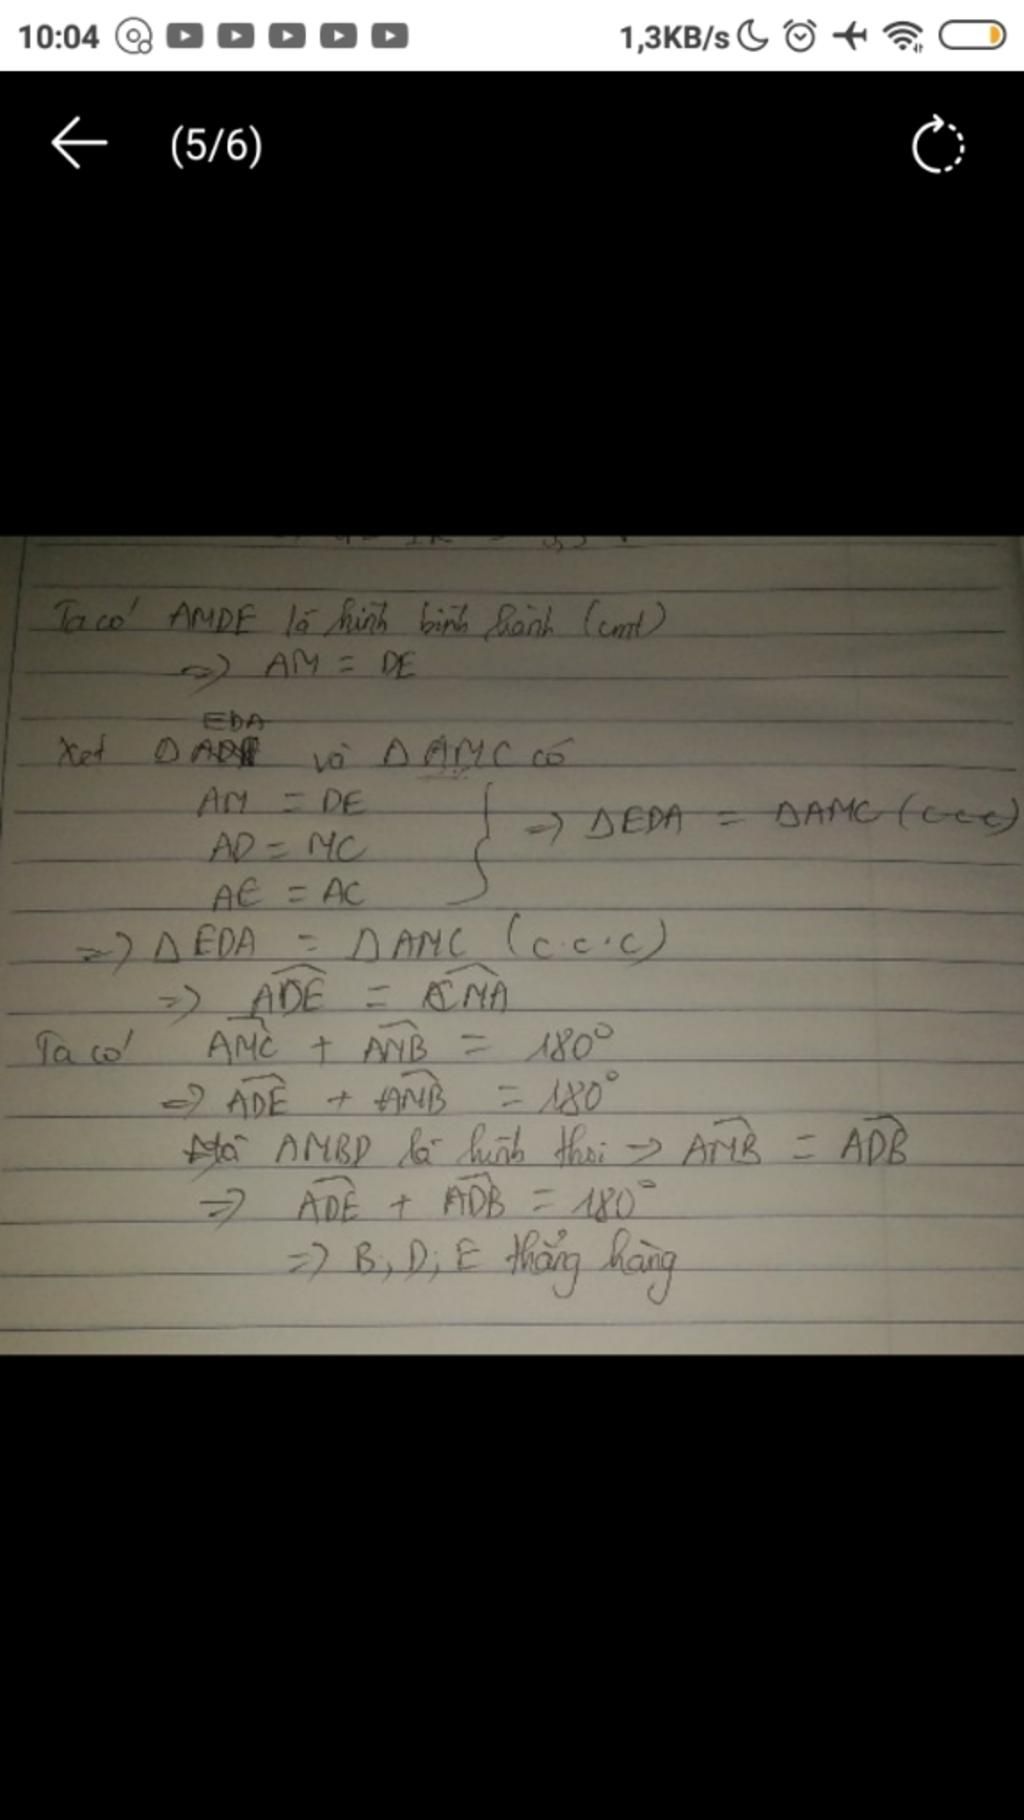 10:04 1,3KB/s
(5/6)
Ta có AMDE là hình bình hành (cmt)
=> AM = DE
EDA
Xét Δ và Δ AMC có
AM = DE
AD = MC => ΔEDA = ΔAMC (c c c)
AE = AC
=> Δ EDA = Δ AMC (c.c.c)
=> ADE = CMA
Ta có AMC + AMB = 180°
=> ADE + AMB = 180°
Mà AMBD là hình thoi => AMB = ADB
=> ADE + ADB = 180°
=> B; D; E thẳng hàng